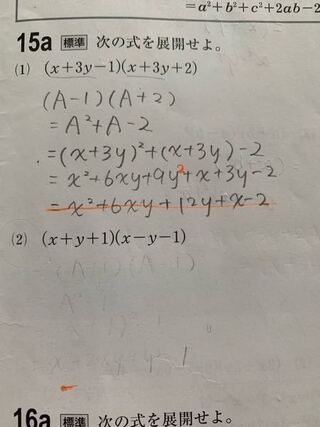 =a²+b²+c²+2ab-2
15a 標準 次の式を展開せよ。
(1) (x+3y-1)(x+3y+2)
(A-1)(A+2)
=A²+A-2
=(x+3y)²+(x+3y)-2
=x²+6xy+9y²+x+3y-2
=x²+6xy+12y+x-2
(2) (x+y+1)(x-y-1)
(A+1)(A-1)
16a 標準 次の式を展開せよ。